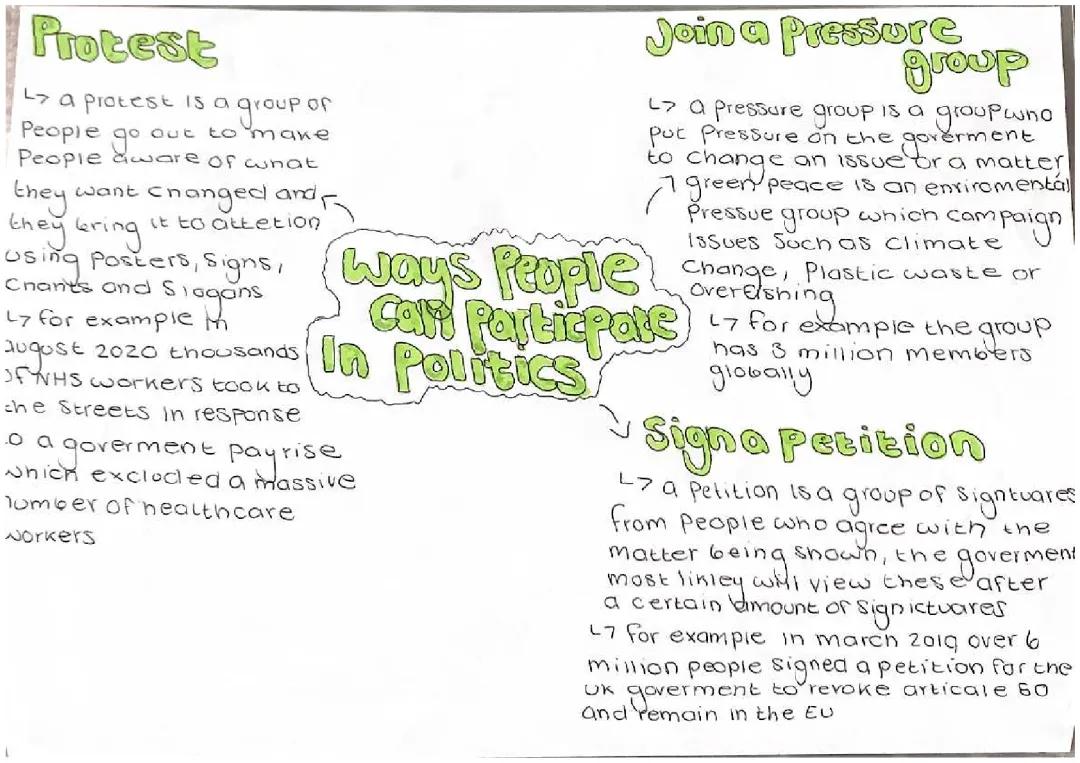 Protest
↳ a protest is a group of
People go out to make
People aware of what
they want changed and
they bring it to attetion
using posters, signs,
Chants and Slogans
↳ for example in
august 2020 thousands
of NHS workers took to
the Streets in response
to a goverment payrise
which excloded a massive
number of healthcare
workers
Ways People
Can Particpate
In Politics
Join a Pressure
group
↳ a pressure group is a group who
put Pressure on the goverment
to change an issue or a matter
green peace is an enviromental
Pressue group which campaign
issues Such as Climate
Change, Plastic waste or
overfishing
↳ for example the group
has 3 million members
globally
Sign a Petition
↳ a Petition is a group of signtuares
from People who agree with the
matter being shown, the goverment
most linley will view these after
a certain amount of signictuares
↳ for example in march 2019 over 6
million people signed a petition for the
UK goverment to revoke articale 60
and remain in the EU